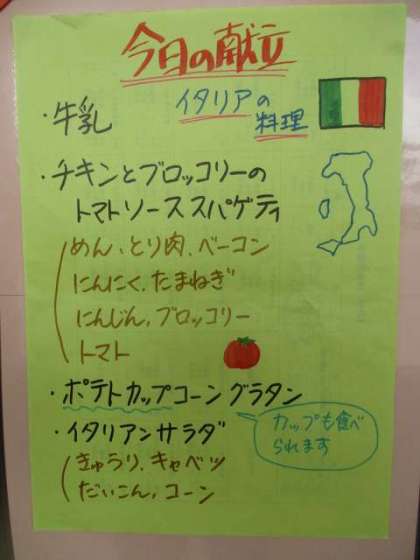 今日の献立
イタリアの
料理
・牛乳
・チキンとブロッコリーの
トマトソーススパゲティ
めん、とり肉、ベーコン
にんにく、たまねぎ
にんじん、ブロッコリー
トマト
・ポテトカップコーングラタン
カップも食べ
られます
・イタリアンサラダ
きゅうり、キャベツ
だいこん、コーン